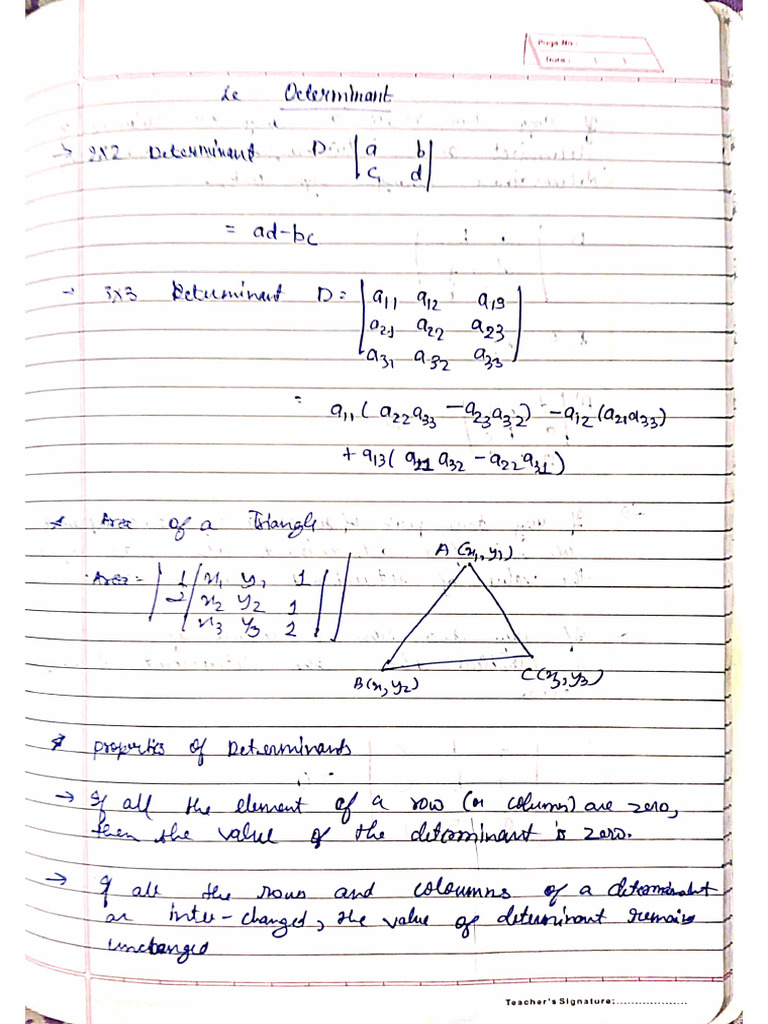 Page No:
Date: / /
Determinant
→ 2x2 Determinant D = |a b|
|c d|
= ad-bc
→ 3x3 Determinant D = |a11 a12 a13|
|a21 a22 a23|
|a31 a32 a33|
= a11 (a22a33 - a23a32) - a12 (a21a33)
+ a13 (a21 a32 - a22 a31)
* Area of a Triangle
A (x1, y1)
Area = | 1/2 | x1 y1 1 | |
| x2 y2 1 |
| x3 y3 1 |
B (x, y2)
C (x3, y3)
* properties of Determinants
→ If all the element of a row (or column) are zero,
then the value of the determinant is zero.
→ If all the rows and coloumns of a determinant
are inter-changed, the value of determinant remains
unchanged
Teacher's Signature:....................